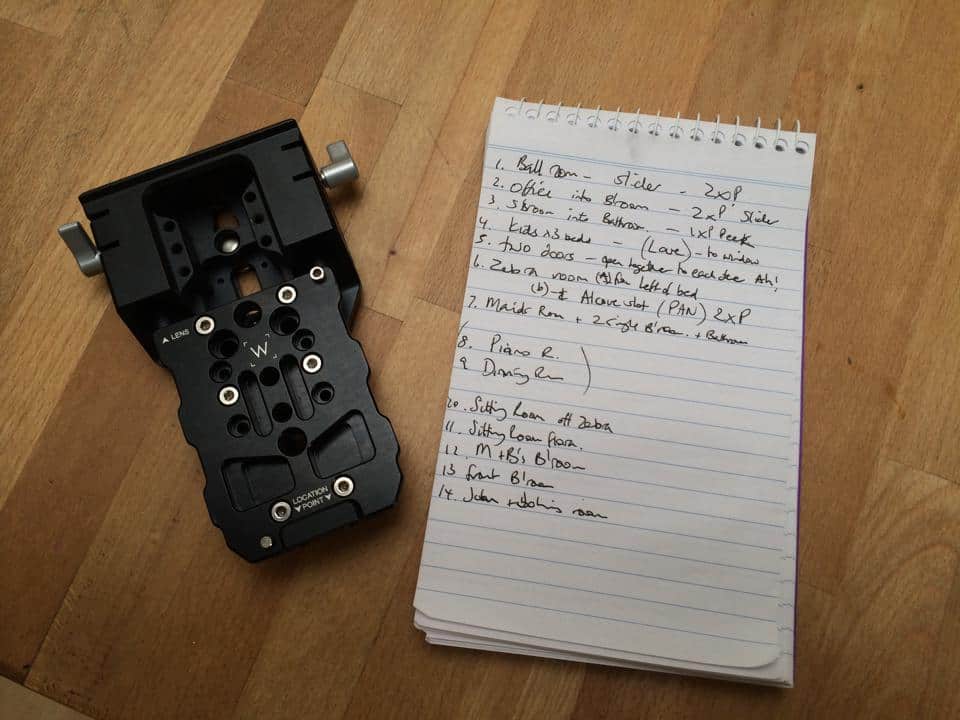 ▲ LENS
W
LOCATION
▼ POINT ▼
1. Ball room - slider - 2xP
2. Office into B'room - 2xP slider
3. into Bathroom - 1xP Peek
4. Kids x3 beds - (Lave) - to window
5. Two doors - open together to each see Ah!
6. Zebra room (A) left of bed
(b) Alcove slot (PAN) 2xP
7. Maids Rom + 2 single B'room + Bathroom
8. Piano R.
9. Dinning Rm
10. Sitting Room off Zebra
11. Sitting Room
12. M + B's B'room
13 front B'room
14. room